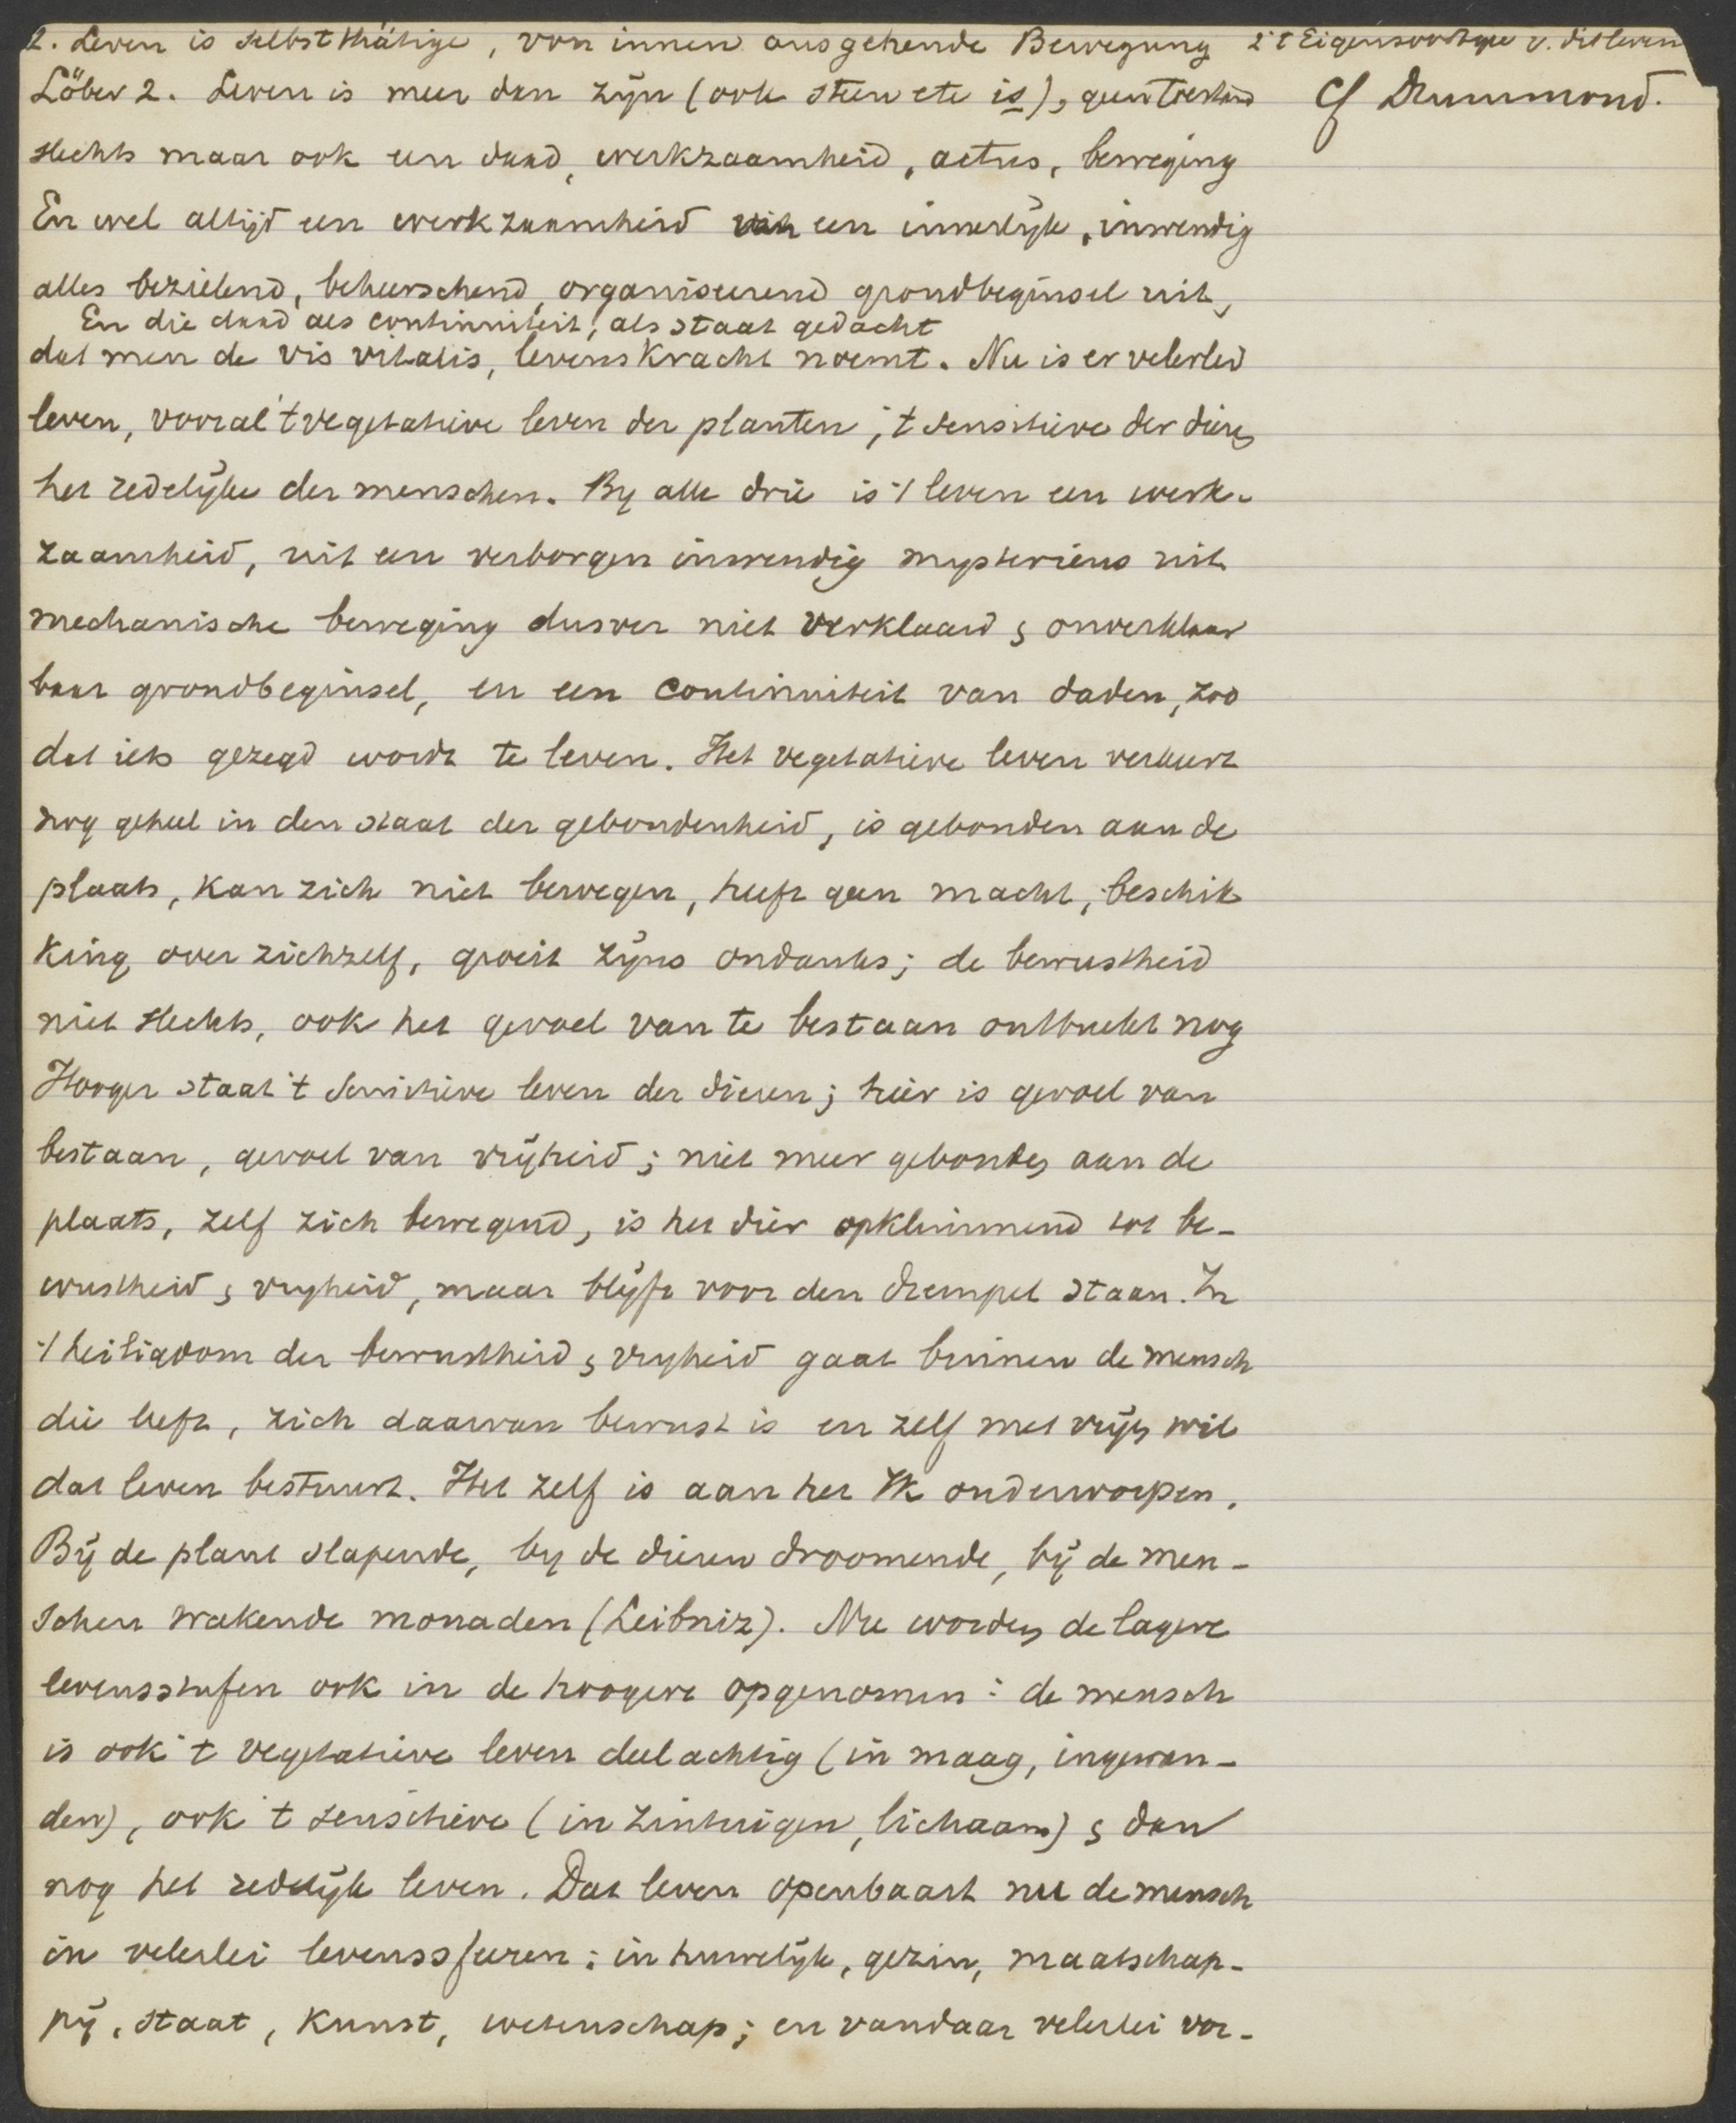 2. Leven is selbstthätige, von innen ausgehende Bewegung 2 't Eigensoortige v. dit leven
Löber 2. Leven is meer dan zijn (ook steen etc is), geen toestand Cf Drummond.
slechts maar ook een daad, werkzaamheid, actus, beweging
En wel altijd een werkzaamheid van een innerlijk, inwendig
alles bezielend, beheerschend, organiseerend grondbeginsel uit,
En die daad als continuiteit, als staat gedacht
dat men de vis vitalis, levenskracht noemt. Nu is er velerlei
leven, vooral 't vegetatieve leven der planten, 't sensitieve der dieren
het redelijke der menschen. By alle drie is 't leven een werk-
zaamheid, uit een verborgen inwendig mysterieus uit
mechanische beweging dusver niet verklaard & onverklaar
baar grondbeginsel, en een continuiteit van daden, zoo
dat iets gezegd wordt te leven. Het vegetatieve leven verkeert
nog geheel in den staat der gebondenheid, is gebonden aan de
plaats, kan zich niet bewegen, heeft geen macht, beschik
king over zichzelf, groeit zijns ondanks; de bewustheid
niet slechts, ook het gevoel van te bestaan ontbreekt nog
Hooger staat 't sensitieve leven der dieren; hier is gevoel van
bestaan, gevoel van vrijheid; niet meer gebonden aan de
plaats, zelf zich bewegend, is het dier opklimmend tot be-
wustheid & vryheid, maar blijft voor den drempel staan. In
't heiligdom der bewustheid & vryheid gaat binnen de mensch
die leeft, zich daarvan bewust is en zelf met vrijen wil
dat leven bestuurt. Het zelf is aan het Ik onderworpen.
Bij de plant slapende, by de dieren droomende, bij de men-
schen wakende monaden (Leibniz). Nu worden de lagere
levensstufen ook in de hoogere opgenomen: de mensch
is ook 't vegetatieve leven deelachtig (in maag, ingewan-
den), ook 't sensitieve (in zintuigen, lichaam) & dan
nog het redelijk leven. Dat leven openbaart nu de mensch
in velerlei levenssfeeren: in huwelijk, gezin, maatschap-
pij, staat, kunst, wetenschap; en vandaar velerlei vor-